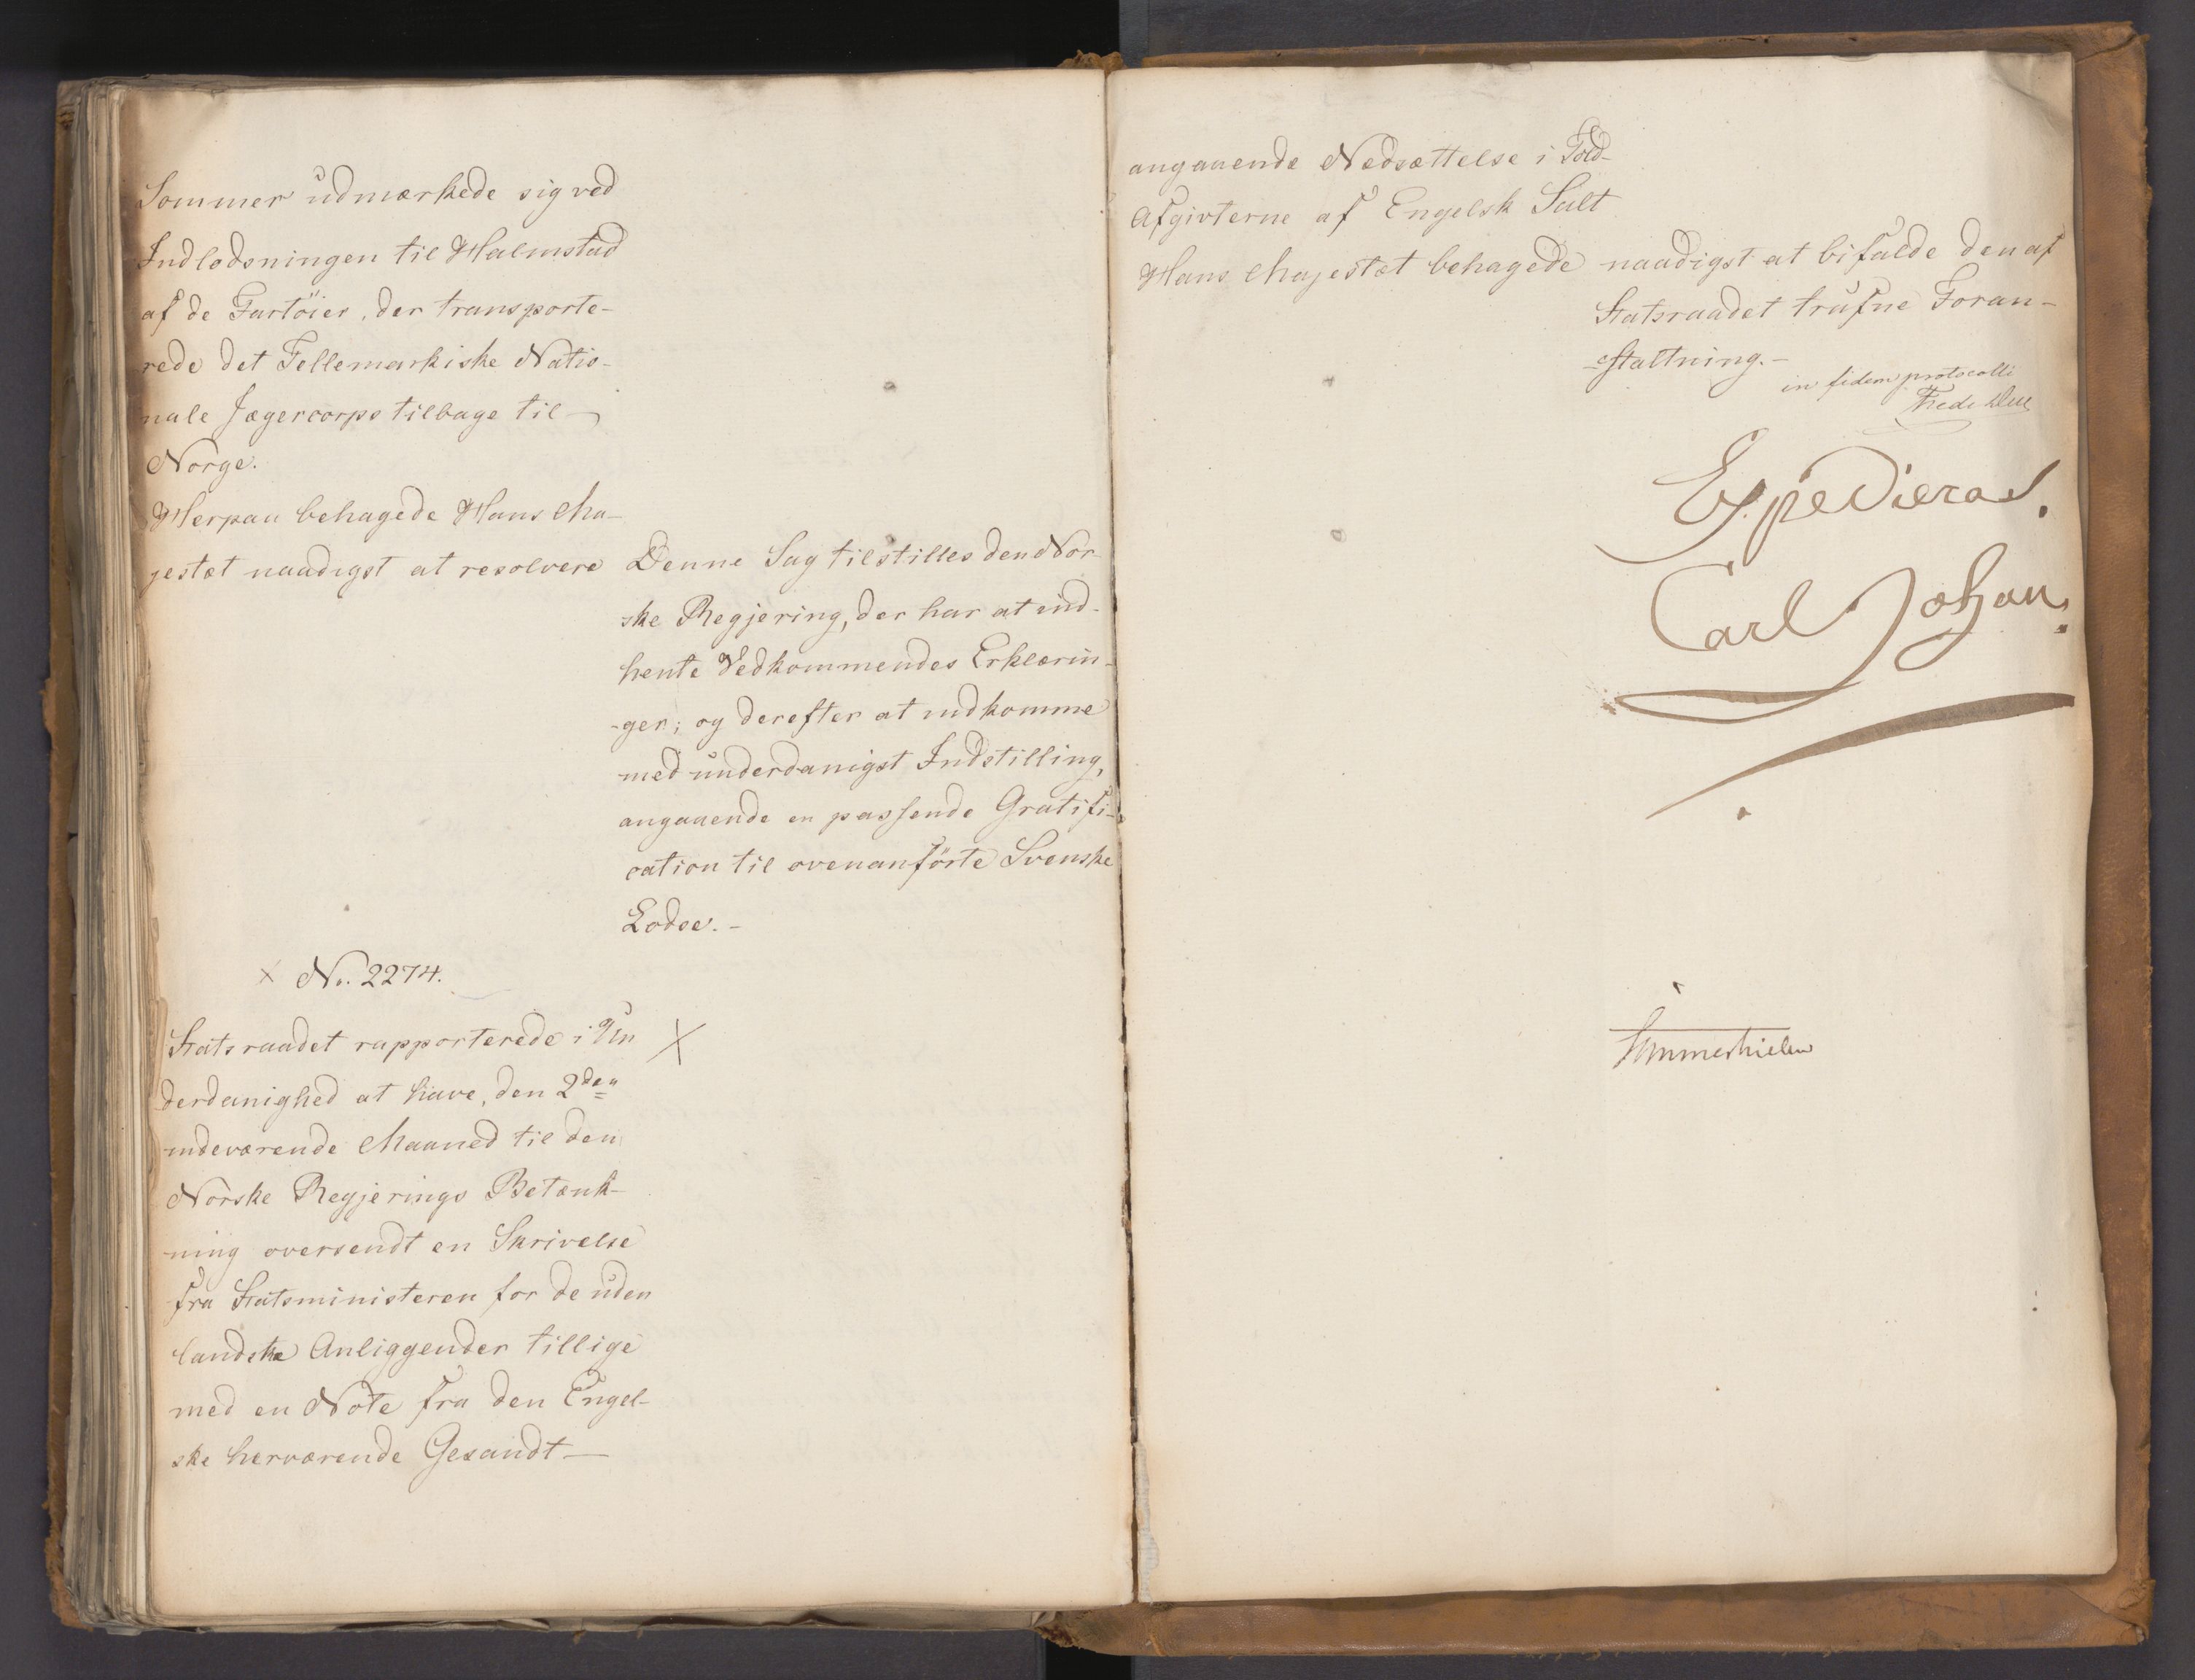 Sommer udmærkede sig ved
Indlodsningen til Halmstad
af de Fartöier, der transporte-
rede det Tellemarkiske Natio-
nale Jægercorps tilbage til
Norge.
Herpaa behagede Hans Ma-
jestæt naadigst at resolvere
Denne Sag tilstilles den Nor-
ske Regjering, der har at ind-
hente Vedkommendes Erklærin-
-ger; og derefter at indkomme
med underdanigst Indstilling,
angaaende en passende Gratifi-
cation til ovenanförte Svenske
Lodse.-
× No. 2274.
Statsraadet rapporterede i Un
×
derdanighed at have, den 2den
indeværende Maaned til den
Norske Regjerings Betænk-
-ning oversendt en Skrivelse
fra Statsministeren for de uden
landske Anliggender tillige
med en Note fra den Engel-
ske herværende Gesandt-
angaaende Nedsættelse i Told-
Afgivterne af Engelsk Salt
Hans Majestæt behagede naadigst at bifalde den af
Statsraadet trufne Foran-
-staltning.-
in fidem protocolli
Fredr Due
Expedieras.
Carl Johan.
Sommerhielm